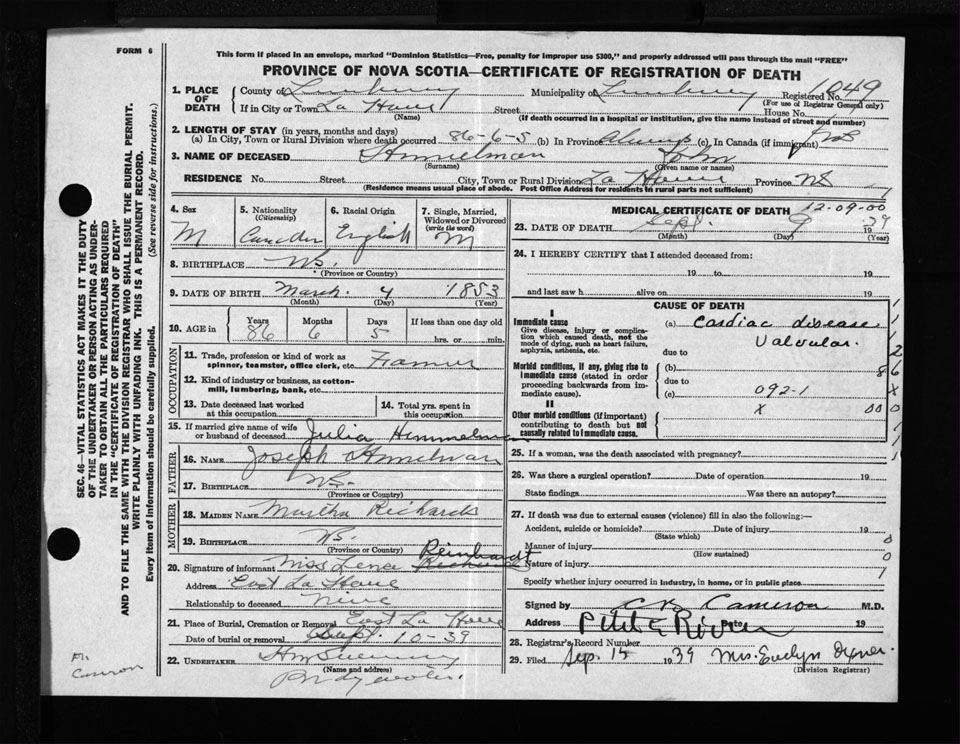 FORM 6
This form if placed in an envelope, marked "Dominion Statistics—Free, penalty for improper use $300," and properly addressed will pass through the mail "FREE"
PROVINCE OF NOVA SCOTIA—CERTIFICATE OF REGISTRATION OF DEATH
1. PLACE OF DEATH
County of Lunenburg Municipality of Lunenburg Registered No. 1049
(For use of Registrar General only)
If in City or Town La Have Street House No.
(Name) (If death occurred in a hospital or institution, give the name instead of street and number)
2. LENGTH OF STAY (in years, months and days)
(a) In City, Town or Rural Division where death occurred 86-6-5 (b) In Province always (c) In Canada (if immigrant)
3. NAME OF DECEASED Himmelman John
(Surname) (Given name or names)
RESIDENCE No. Street City, Town or Rural Division La Have Province NS
(Residence means usual place of abode. Post Office Address for residents in rural parts not sufficient)
4. Sex
M
5. Nationality (Citizenship)
Canadian
6. Racial Origin
English
7. Single, Married, Widowed or Divorced (write the word)
M
8. BIRTHPLACE N.S.
(Province or Country)
9. DATE OF BIRTH March 4 1853
(Month) (Day) (Year)
10. AGE in Years Months Days If less than one day old
86 6 5 hrs. or min.
OCCUPATION
11. Trade, profession or kind of work as spinner, teamster, office clerk, etc. Farmer
12. Kind of industry or business, as cotton-mill, lumbering, bank, etc.
13. Date deceased last worked at this occupation
14. Total yrs. spent in this occupation
15. If married give name of wife or husband of deceased Julia Himmelman
FATHER
16. NAME Joseph Himelman
17. BIRTHPLACE N.S.
(Province or Country)
MOTHER
18. MAIDEN NAME Martha Richards
19. BIRTHPLACE N.S.
(Province or Country)
20. Signature of informant Miss Lena Reinhardt
Address East La Have
Relationship to deceased Niece
21. Place of Burial, Cremation or Removal East La Have
Date of burial or removal Sept 10-39
22. UNDERTAKER
(Name and address)
Bridgewater.
MEDICAL CERTIFICATE OF DEATH 12-09-00
23. DATE OF DEATH Sept. 9 1939
(Month) (Day) (Year)
24. I HEREBY CERTIFY that I attended deceased from:
19 to 19
and last saw h alive on 19
CAUSE OF DEATH
I
Immediate cause
Give disease, injury or complication which caused death, not the mode of dying, such as heart failure, asphyxia, asthenia, etc.
(a) Cardiac disease
Valvular.
due to
Morbid conditions, if any, giving rise to immediate cause (stated in order proceeding backwards from immediate cause)
(b) 8
due to
(c) 092-1
II
Other morbid conditions (if important) contributing to death but not causally related to immediate cause.
X 00
25. If a woman, was the death associated with pregnancy?
26. Was there a surgical operation? Date of operation 19
State findings Was there an autopsy?
27. If death was due to external causes (violence) fill in also the following:—
Accident, suicide or homicide? Date of injury 19
(State which)
Manner of injury
(How sustained)
Nature of injury
Specify whether injury occurred in industry, in home, or in public place
Signed by Cameron M.D.
Address Petite Riviere Date 19
28. Registrar's Record Number
29. Filed Sep. 15 1939 Mrs. Evelyn Oxner.
(Division Registrar)
SEC. 46—VITAL STATISTICS ACT MAKES IT THE DUTY
OF THE UNDERTAKER OR PERSON ACTING AS UNDER-
TAKER TO OBTAIN ALL THE PARTICULARS REQUIRED
IN THE "CERTIFICATE OF REGISTRATION OF DEATH"
AND TO FILE THE SAME WITH THE DIVISION REGISTRAR WHO SHALL ISSUE THE BURIAL PERMIT.
WRITE PLAINLY WITH UNFADING INK. THIS IS A PERMANENT RECORD.
Every item of information should be carefully supplied. (See reverse side for instructions.)